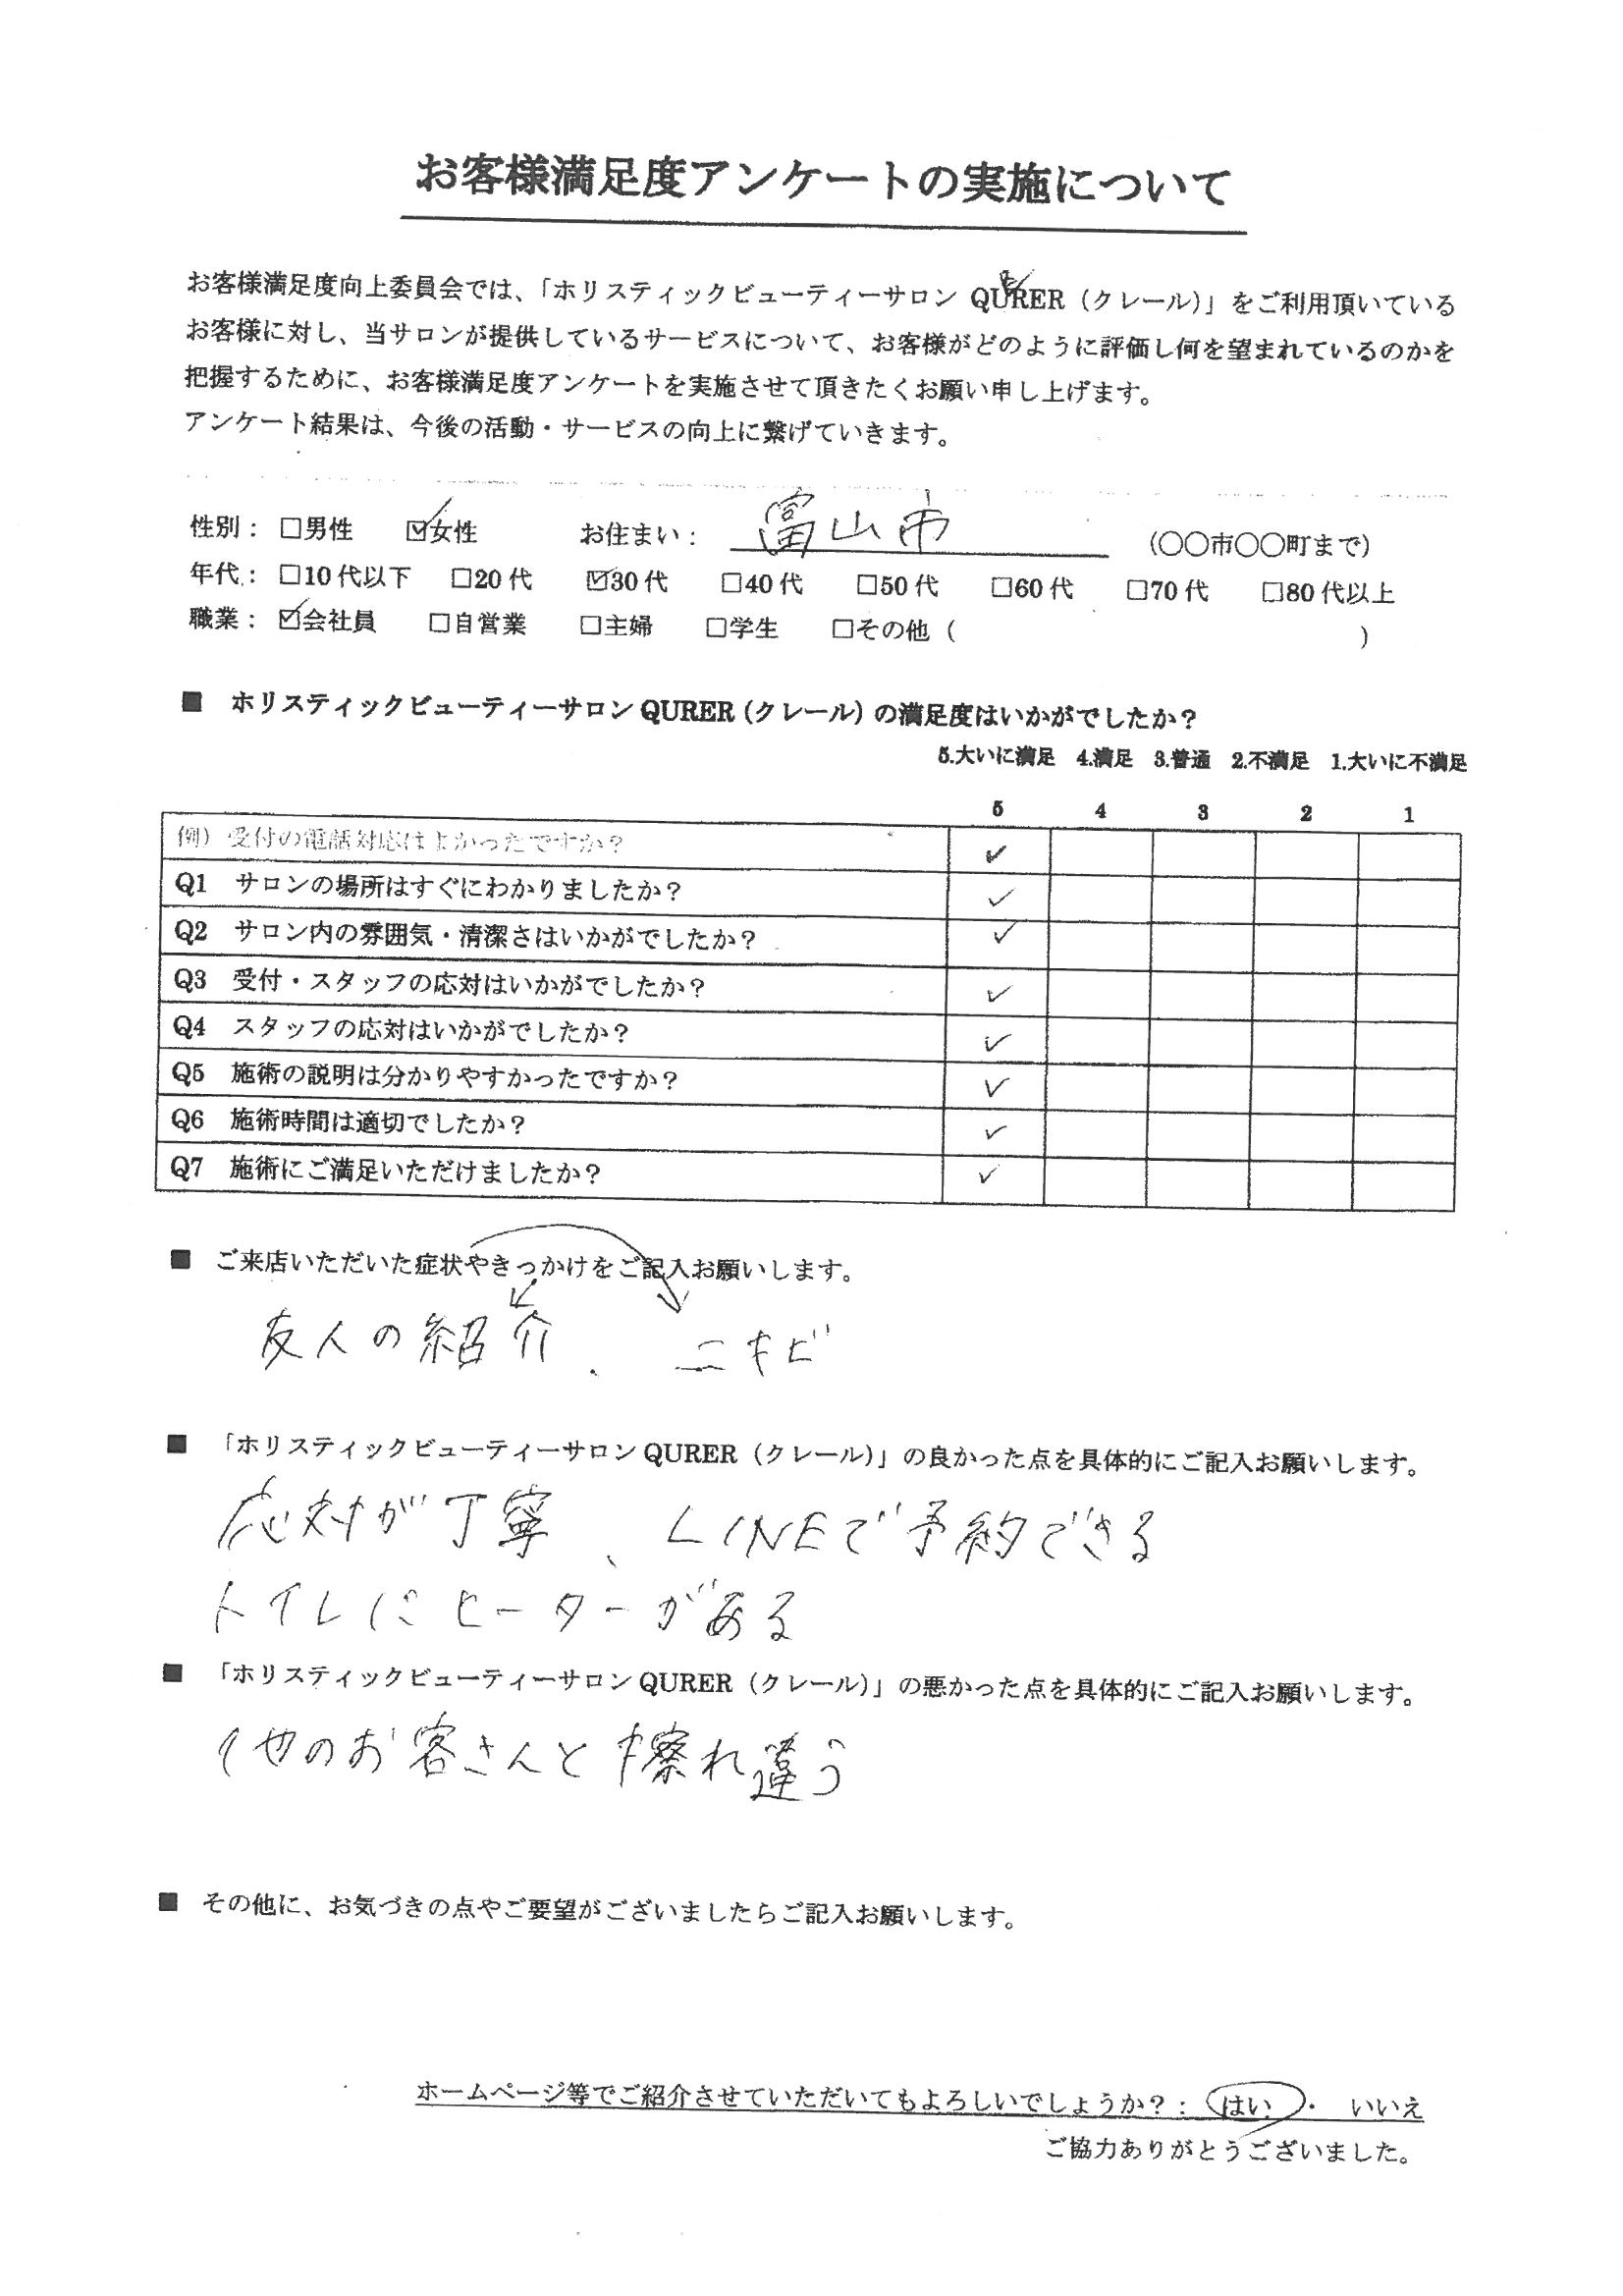 お客様満足度アンケートの実施について
お客様満足度向上委員会では、「ホリスティックビューティーサロン QURER（クレール）」をご利用頂いている
お客様に対し、当サロンが提供しているサービスについて、お客様がどのように評価し何を望まれているのかを
把握するために、お客様満足度アンケートを実施させて頂きたくお願い申し上げます。
アンケート結果は、今後の活動・サービスの向上に繋げていきます。
性別： □男性 ☑女性 お住まい： 富山市 （○○市○○町まで）
年代： □10代以下 □20代 ☑30代 □40代 □50代 □60代 □70代 □80代以上
職業： ☑会社員 □自営業 □主婦 □学生 □その他（ ）
■ ホリスティックビューティーサロン QURER（クレール）の満足度はいかがでしたか？
5.大いに満足 4.満足 3.普通 2.不満足 1.大いに不満足
5 4 3 2 1
例）受付の電話対応はよかったですか？ ✓
Q1 サロンの場所はすぐにわかりましたか？ ✓
Q2 サロン内の雰囲気・清潔さはいかがでしたか？ ✓
Q3 受付・スタッフの応対はいかがでしたか？ ✓
Q4 スタッフの応対はいかがでしたか？ ✓
Q5 施術の説明は分かりやすかったですか？ ✓
Q6 施術時間は適切でしたか？ ✓
Q7 施術にご満足いただけましたか？ ✓
■ ご来店いただいた症状やきっかけをご記入お願いします。
友人の紹介、ニキビ
■ 「ホリスティックビューティーサロン QURER（クレール）」の良かった点を具体的にご記入お願いします。
応対が丁寧、LINEで予約できる
トイレにヒーターがある
■ 「ホリスティックビューティーサロン QURER（クレール）」の悪かった点を具体的にご記入お願いします。
他のお客さんと擦れ違う
■ その他に、お気づきの点やご要望がございましたらご記入お願いします。
ホームページ等でご紹介させていただいてもよろしいでしょうか？： はい ・ いいえ
ご協力ありがとうございました。